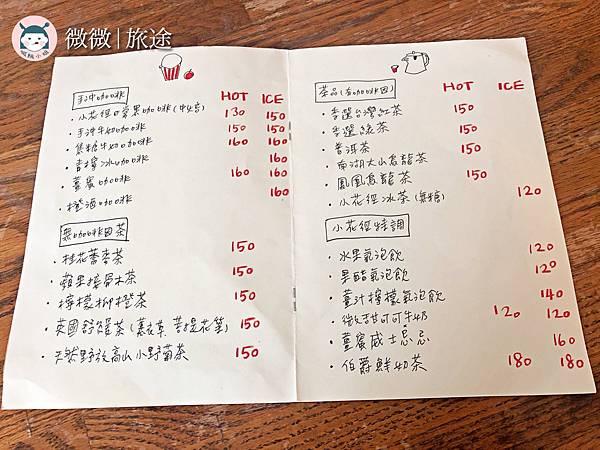 微微|旅途
手沖咖啡 HOT ICE
・小花徑日常黑咖啡(中焙) 130 150
・手沖牛奶咖啡 150 150
・焦糖牛奶咖啡 160 160
・青檸冰咖啡 160
・薑蜜咖啡 160 160
・橙酒咖啡 160
無咖啡因茶
・桂花蕎麥茶 150
・蘋果接骨木茶 150
・檸檬柳橙茶 150
・英國舒緩茶(薰衣草 菩提花等) 150
・天然野放高山小野菊茶 150
茶品(含咖啡因) HOT ICE
・季選台灣紅茶 150
・季選綠茶 150
・普洱茶 150
・南湖大山烏龍茶 150
・鳳凰烏龍茶 150
・小花徑冰茶(無糖) 120
小花徑特調
・水果氣泡飲 120
・果醋氣泡飲 120
・薑汁檸檬氣泡飲 140
・微甜可可牛奶 120 120
・薑蜜威士忌 160
・伯爵鮮奶茶 180 180